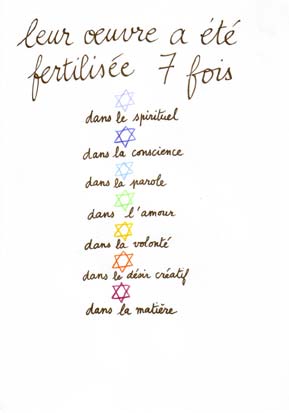 leur œuvre a été
fertilisée 7 fois
dans le spirituel
dans la conscience
dans la parole
dans l'amour
dans la volonté
dans le désir créatif
dans la matière